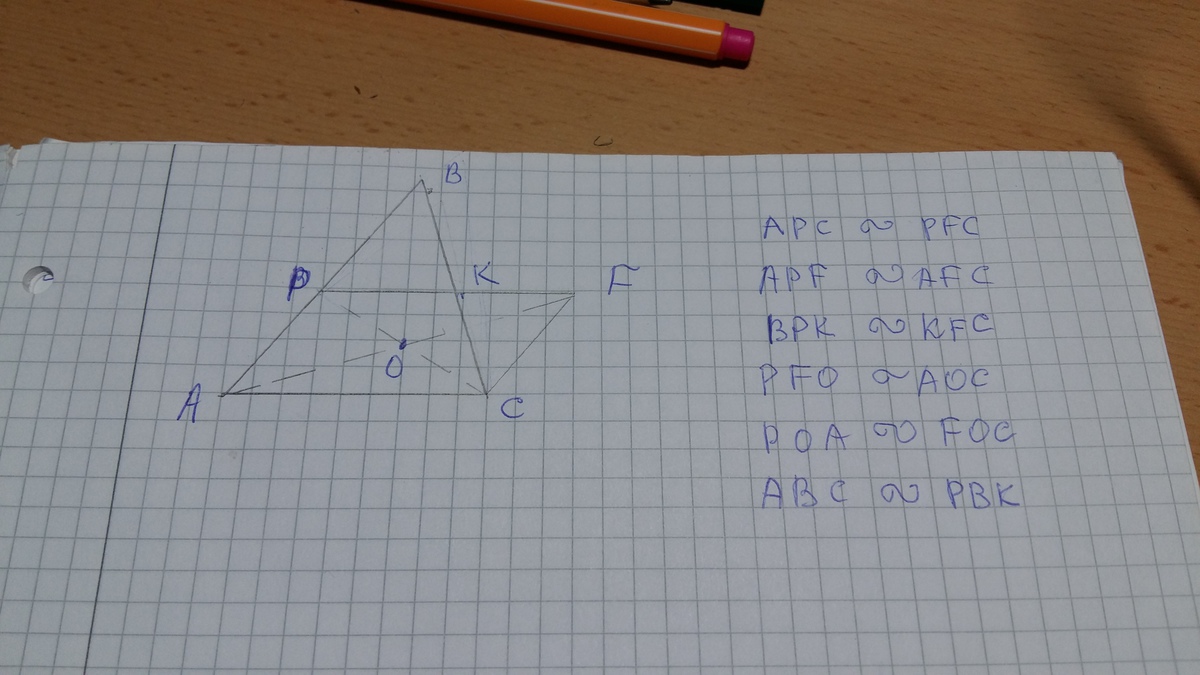 B
P K F
O
A C
APC ~ PFC
APF ~ AFC
BPK ~ KFC
PFO ~ AOC
POA ~ FOC
ABC ~ PBK